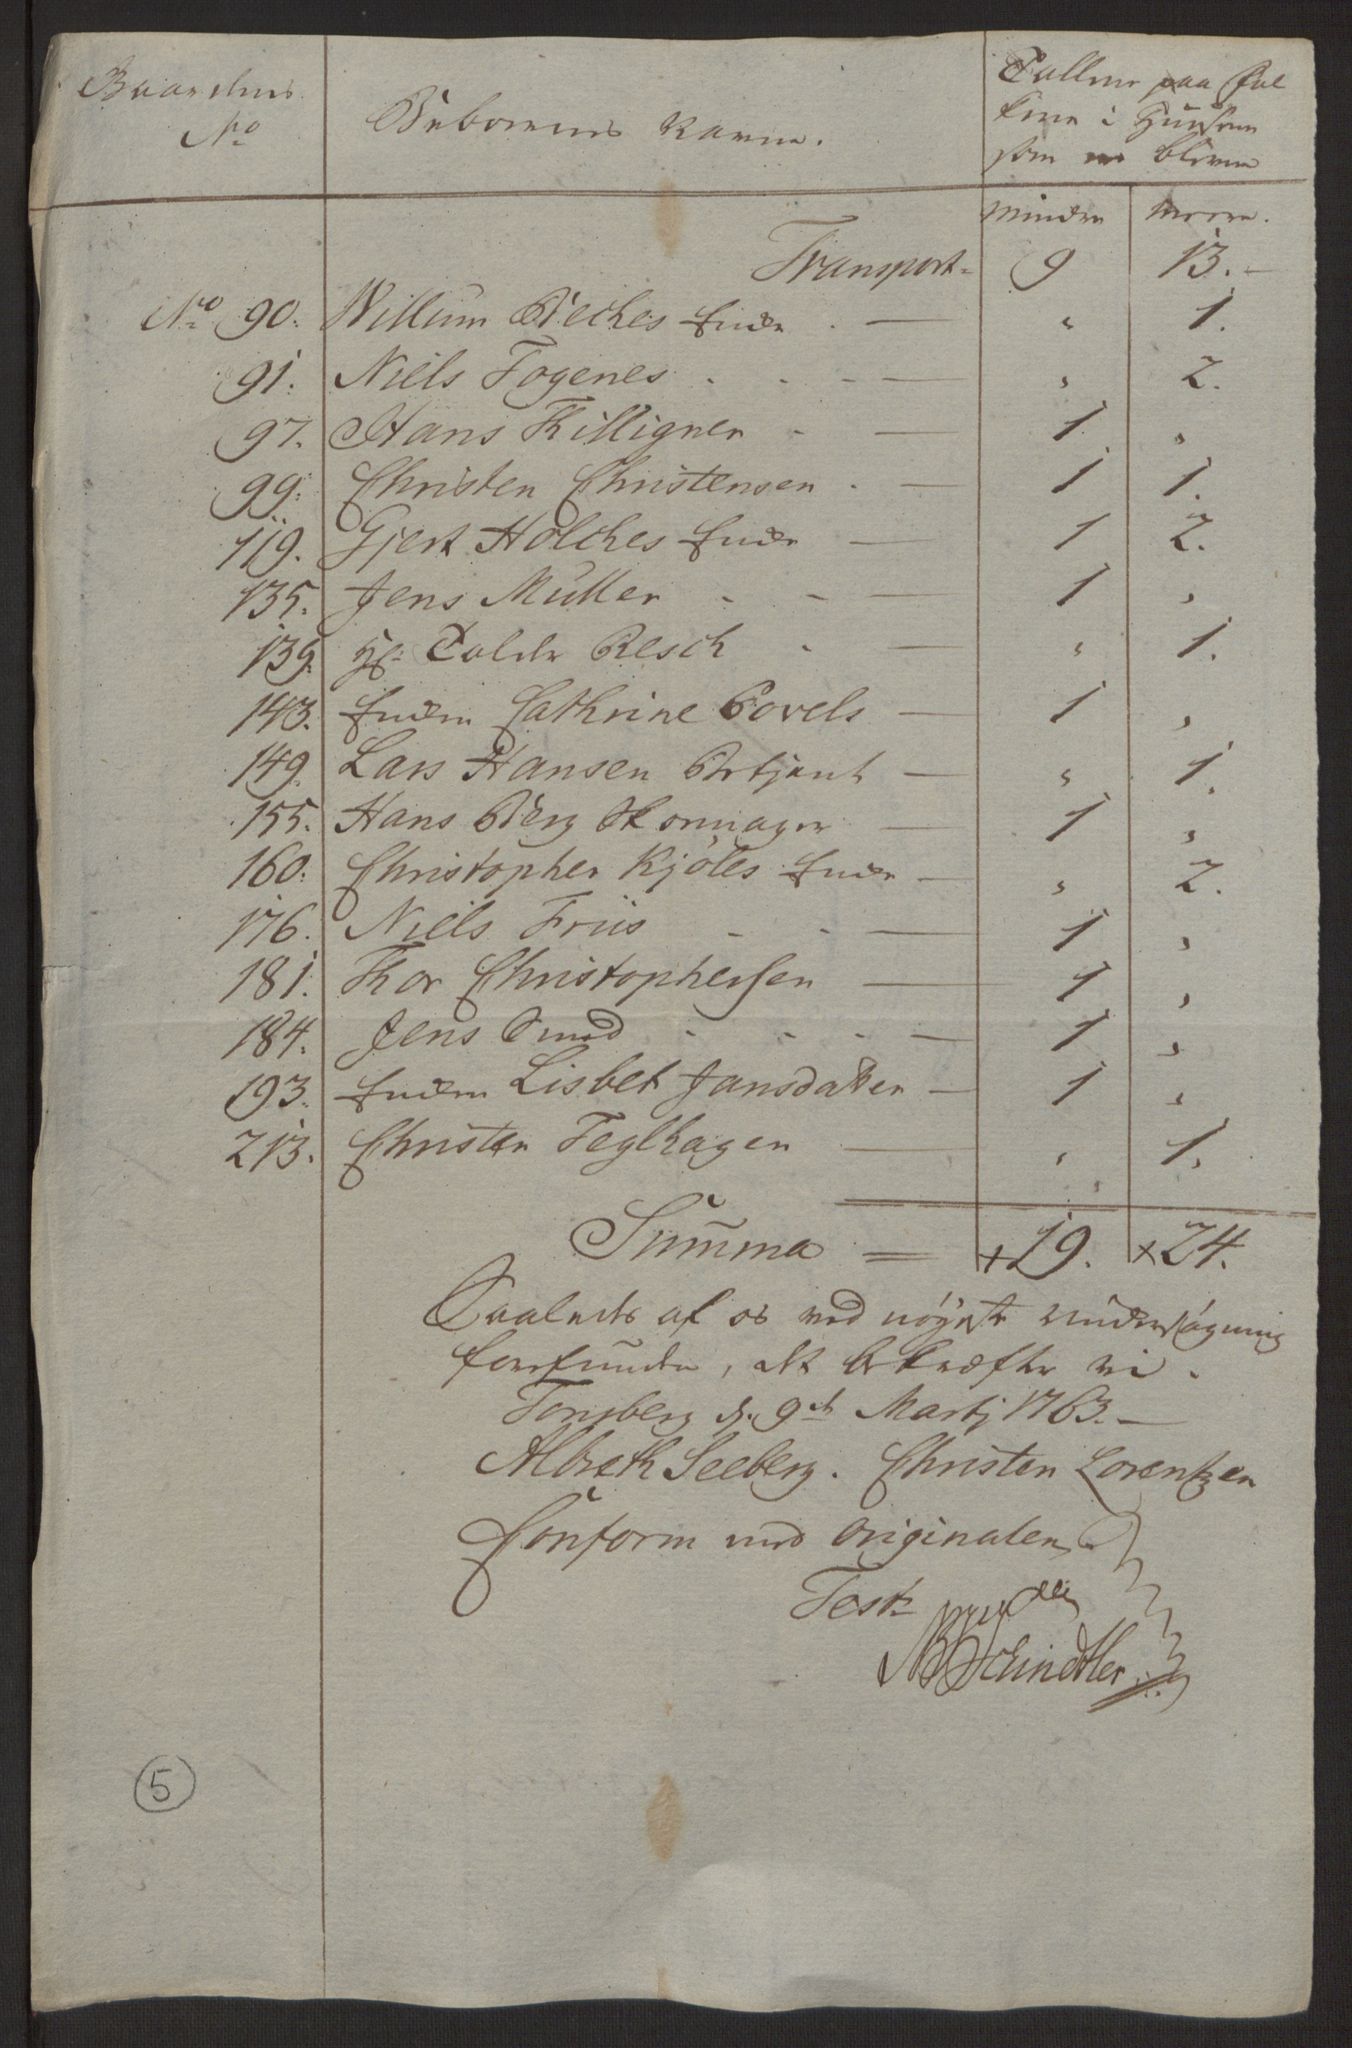 Gaardens No
Beboernes Navne.
Tallene paa Fol
kene i Husene
som er bleven
minder
meere.
Transport- 9 13.-
No 90. Willum Beches Encke . — " 1.
91. Niels Fogenes . . . — " 2.
97. Hans Killigner . — 1 "
99. Christen Christensen . — 1 1.
119. Gjert Holches Encke — 1 2.
135. Jens Müller . . — 1 "
139. Hr: Tolder Resch . — " 1.
143. Encken Cathrine Povels — 1 "
149. Lars Hansen Betjent — " 1.
155. Hans Berg Skomager — 1 "
160. Christopher Kjöles Encke — " 2.
176. Niels Friis . . — 1 "
181. Thor Christophersen — 1 "
184. Jens Smed . . . — 1 "
193. Encken Lisbet Jansdatter — 1 "
213. Christen Teglhagen — " 1.
Summa = + 19. × 24.
Saaledes af os ved nöyeste Undersögning
forefunden, det bekræfter vi.
Tonsberg d. 9de Martj 1763. —
Albreth Seeberg. Christen Lorentzen
Conform med Originalen
Test-
Schindtler
5